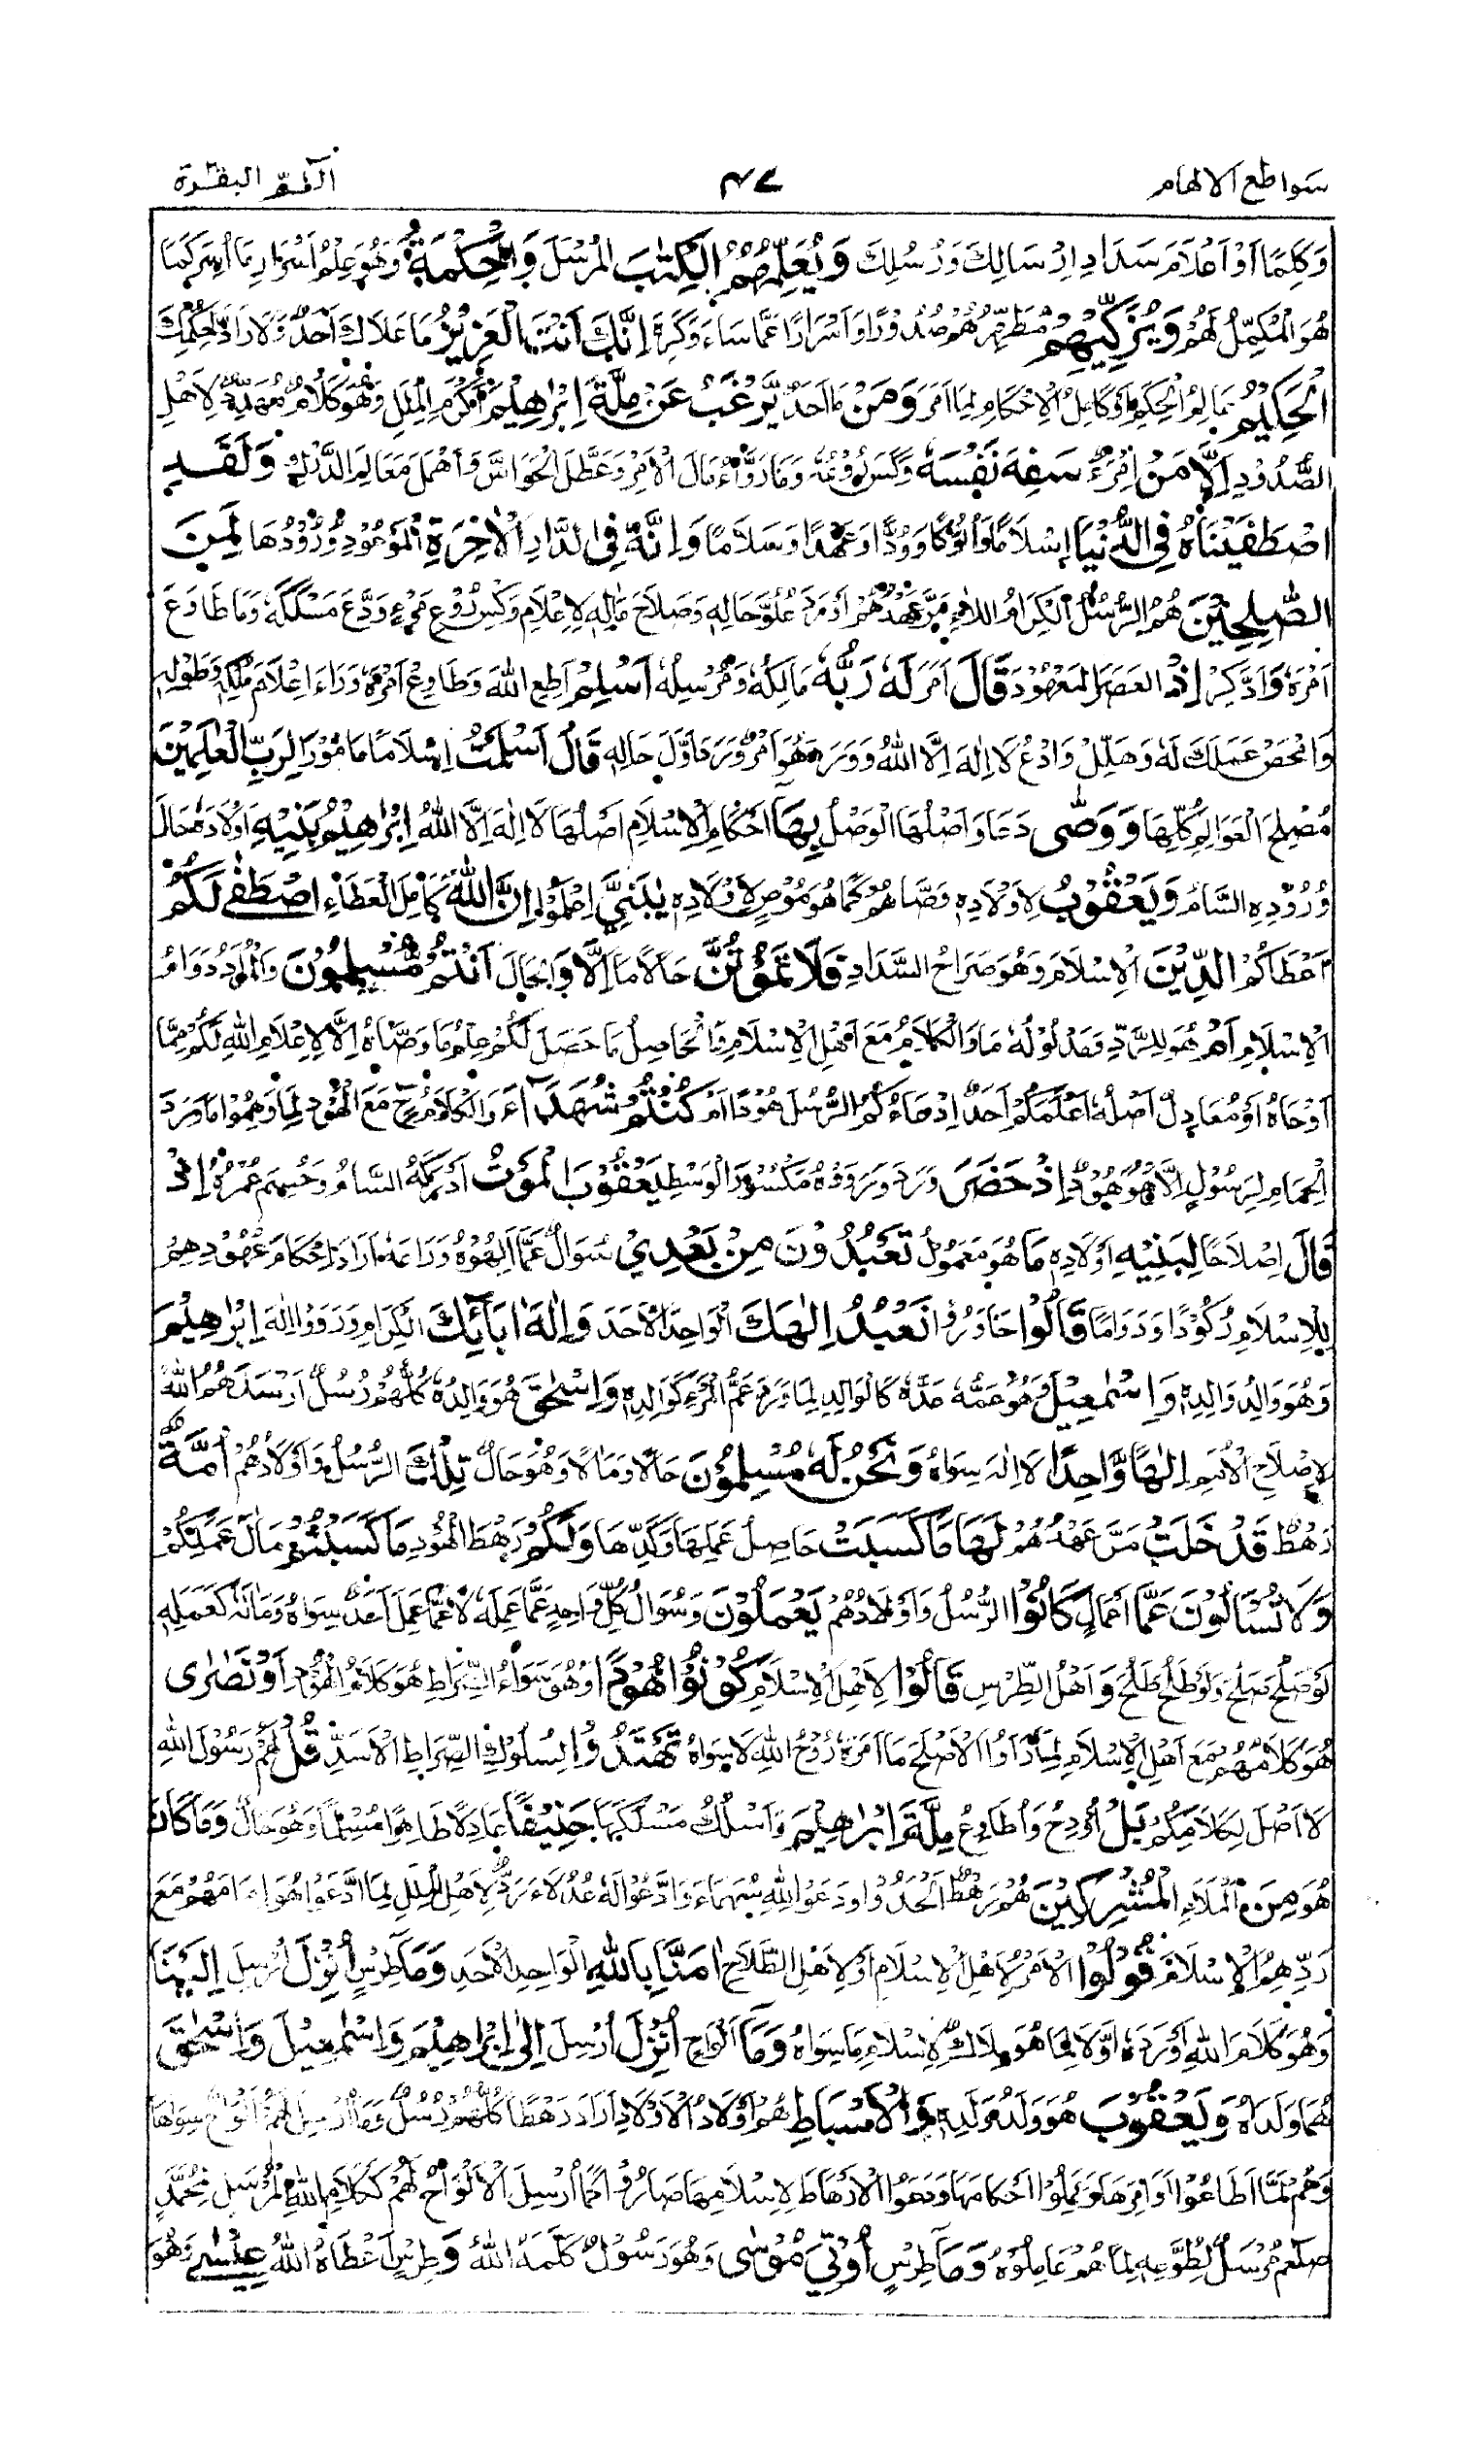 سواطع الالهام ٤٧ الٓمّ البقرة
وَكَلِمًا اَوْ اَعْلَامَ سَدَادِ اِرْسَالِكَ وَرُسُلِكَ وَيُعَلِّمُهُمُ الْكِتٰبَ الْمُرْسَلَ وَالْحِكْمَةَ وَهُوَ عِلْمُ اَسْرَارِ مَا اُسِرَ كَمَا
هُوَ الْمُكَمِّلُ لَهُمْ وَيُزَكِّيْهِمْ مُطَهِّرُهُمْ صُدُوْرًا وَاَسْرَارًا عَمَّا سَاءَ وَكَرِهَ اِنَّكَ اَنْتَ الْعَزِيْزُ مَا عَلَاكَ اَحَدٌ وَلَا رَادَّ لِحُكْمِكَ
الْحَكِيْمُ عَالِمُ الْحِكَمِ وَكَامِلُ الْاِحْكَامِ لِمَا اَمَرَ وَمَنْ مَا اَحَدٌ يَّرْغَبُ عَنْ مِلَّةِ اِبْرٰهِيْمَ اَكْرَمِ الْمِلَلِ وَهُوَ كَلَامٌ مُمَهِّدٌ لِاَهْلِ
الصُّدُوْدِ اِلَّا مَنْ اِمْرَءٌ سَفِهَ نَفْسَهٗ وَكَسَ رُوْعُهٗ وَمَا رَوَّاءُ مَالَ الْاَمْرِ وَعَطَّلَ الْحَوَاسَّ وَاَهْمَلَ مَعَالِمَ الدَّرْكِ وَلَقَدِ
اصْطَفَيْنَاهُ فِى الدُّنْيَا اِسْلَامًا وَاُلُوْكًا وَوُدًّا وَعَهْدًا وَسَلَامًا وَاِنَّهٗ فِى الدَّارِ الْاٰخِرَةِ الْمَوْعُوْدِ وُرُوْدُهَا لَمِنَ
الصّٰلِحِيْنَ هُمُ الرُّسُلُ الْكِرَامُ مَرَّ عَهْدُهُمْ اَوْرَدَ عُلُوَّ حَالِهٖ وَصَلَاحَ مَالِهٖ لِاِعْلَامِ وَكْسِ رُوْعِ مَرْءٍ وَدَّعَ مَسْلَكَهٗ وَمَا طَاوَعَ
اَمْرَهٗ وَادَّكِرْ اِذْ الْعَصْرَ الْمَعْهُوْدَ قَالَ اَمَرَ لَهٗ رَبُّهٗ مَالِكُهٗ وَمُرْسِلُهٗ اَسْلِمْ اَطِعِ اللّٰهَ وَطَاوِعْ اَمْرَهٗ وَرَاءَ اِعْلَامِ مُلْكِهٖ وَطَوْلِهٖ
وَامْحَضْ عَمَلَكَ لَهٗ وَهَلِّلْ وَادْعُ لَا اِلٰهَ اِلَّا اللّٰهُ وَوَرَدَ هُوَ اَمْرٌ وَرَدَ اَوَّلَ حَالِهٖ قَالَ اَسْلَمْتُ اِسْلَامًا مَامُوْرًا لِرَبِّ الْعٰلَمِيْنَ
مُصْلِحَ الْعَوَالِمِ كُلِّهَا وَوَصّٰى دَعَا وَاَصْلُهَا الْوَصْلُ بِهَا اَحْكَامِ الْاِسْلَامِ اَصْلُهَا لَا اِلٰهَ اِلَّا اللّٰهُ اِبْرٰهِيْمُ بَنِيْهِ اَوْلَادَهٗ حَالَ
وُرُوْدِهِ السَّامَ وَيَعْقُوْبُ لِاَوْلَادِهٖ وَصَّاهُمْ كَمَا هُوَ مُوْصٍ لِاَوْلَادِهٖ يٰبَنِيَّ اعْلَمُوْا اِنَّ اللّٰهَ كَامِلَ الْعَطَاءِ اصْطَفٰى لَكُمُ
اَعْطَاكُمُ الدِّيْنَ الْاِسْلَامَ وَهُوَ صِرَاحُ السَّدَادِ فَلَا تَمُوْتُنَّ حَالًا مَا اِلَّا وَالْحَالَ اَنْتُمْ مُّسْلِمُوْنَ وَالْمُرَادُ دَوَامُ
الْاِسْلَامِ اَمْ هُوَ لِلرَّدِّ وَالْكَلَامُ مَعَ اَهْلِ الْاِسْلَامِ وَالْحَاصِلُ مَا حَصَلَ لَكُمْ عِلْمُ مَا وَصَّاهُ اِلَّا لِاِعْلَامِ اللّٰهِ لَكُمْ مِمَّا
اَوْحَاهُ اَوْ مُعَادِلٌ اَصْلُهٗ اَعَلَّمَكُمْ اَحَدٌ اِدِّعَاءَكُمُ الرُّسُلَ هُوْدًا اَمْ كُنْتُمْ شُهَدَآءَ وَالْكَلَامُ مَعَ الْهُوْدِ لِمَا وَهِمُوْا مَا وَرَدَ
الْحِمَامُ لِرَسُوْلٍ اِلَّا هُوَ هُوْدٌ اِذْ حَضَرَ وَرَدَ وَرَوَوْهُ مَكْسُوْرَ الْوَسَطِ يَعْقُوْبَ الْمَوْتُ اَدْرَكَهُ السَّامُ وَحُسِمَ عُمْرُهٗ اِذْ
قَالَ اِصْلَاحًا لِبَنِيْهِ اَوْلَادِهٖ مَا هُوَ مَعْمُوْلُ تَعْبُدُوْنَ مِنْ بَعْدِيْ سُوَالٌ عَمَّا اَلِهُوْهُ وَرَاءَهٗ اَرَادَ اِحْكَامَ عُهُوْدِهِمْ
لِلْاِسْلَامِ رُكُوْدًا وَدَوَامًا قَالُوْا حَاوَرُوْا نَعْبُدُ اِلٰهَكَ الْوَاحِدَ الْاَحَدَ وَاِلٰهَ اٰبَآئِكَ الْكِرَامِ وَرَوَوْا اِلٰهَ اِبْرٰهِيْمَ
وَهُوَ وَالِدُ وَالِدِهٖ وَاِسْمٰعِيْلَ هُوَ عَمُّهٗ عَدَّهٗ كَالْوَالِدِ لِمَا وَرَدَ عَمُّ الْمَرْءِ كَوَالِدِهٖ وَاِسْحٰقَ هُوَ وَالِدُهٗ كُلُّهُمْ رُسُلٌ اَرْسَلَهُمُ اللّٰهُ
لِاِصْلَاحِ الْاُمَمِ اِلٰهًا وَّاحِدًا لَا اِلٰهَ سِوَاهُ وَنَحْنُ لَهٗ مُسْلِمُوْنَ حَالًا وَمَالًا وَهُوَ حَالٌ تِلْكَ الرُّسُلُ وَاَوْلَادُهُمْ اُمَّةٌ
رَهْطٌ قَدْ خَلَتْ مَرَّ عَهْدُهُمْ لَهَا مَا كَسَبَتْ حَاصِلُ عَمَلِهَا وَكَدِّهَا وَلَكُمْ رَهْطَ الْهُوْدِ مَا كَسَبْتُمْ مَالُ عَمَلِكُمْ
وَلَا تُسْاَلُوْنَ عَمَّا اَعْمَالٍ كَانُوْا الرُّسُلُ وَاَوْلَادُهُمْ يَعْمَلُوْنَ وَسُوَالُ كُلِّ وَاحِدٍ عَمَّا عَمِلَهٗ لَا عَمَّا عَمِلَ اَحَدٌ سِوَاهُ وَمَالُهٗ كَعَمَلِهٖ
لَوْ صَلُحَ صَلَحَ وَلَوْ طَلَحَ طَلَحَ وَاَهْلُ الطِّرْسِ قَالُوْا لِاَهْلِ الْاِسْلَامِ كُوْنُوْا هُوْدًا وَهُوَ سَوَاءُ الصِّرَاطِ هُوَ كَلَامُ الْهُوْدِ اَوْ نَصٰرٰى
هُوَ كَلَامُهُمْ مَعَ اَهْلِ الْاِسْلَامِ لِمَا رَاَوْا الْاَصْلَحَ مَا اَمَرَهٗ رُوْحُ اللّٰهِ لَا سِوَاهُ تَهْتَدُوْا لِسُلُوْكِ الصِّرَاطِ الْاَسَدِّ قُلْ لَهُمْ رَسُوْلَ اللّٰهِ
لَا اَصْلَ لِكَلَامِكُمْ بَلْ اُطَاوِعُ مِلَّةَ اِبْرٰهِيْمَ وَاَسْلُكُ مَسْلَكَهَا حَنِيْفًا عَادِلًا طَاهِرًا مُسْلِمًا وَهُوَ حَالٌ وَمَا كَانَ
هُوَ مِنَ الْمَلَاءِ الْمُشْرِكِيْنَ هُمْ رَهْطٌ اَلْحَدُوْا وَدَعَوْا لِلّٰهِ سُهَمَاءَ وَادَّعَوْا لَهٗ عُدَلَاءَ رَدٌّ لِاَهْلِ الْمِلَلِ لِمَا ادَّعَوْا مَعَ
رَدِّهِمُ الْاِسْلَامَ قُوْلُوْا الْاَمْرُ لِاَهْلِ الْاِسْلَامِ اَوْ لِاَهْلِ الطَّلَاحِ اٰمَنَّا بِاللّٰهِ الْوَاحِدِ الْاَحَدِ وَمَا طِرْسٍ اُنْزِلَ اُرْسِلَ اِلَيْنَا
وَهُوَ كَلَامُ اللّٰهِ اَوْرَدَهٗ اَوَّلًا لِمَا هُوَ مِلَاكُ لِاِسْلَامِ مَا سِوَاهُ وَمَا اَلْوَاحٍ اُنْزِلَ اُرْسِلَ اِلٰى اِبْرٰهِيْمَ وَاِسْمٰعِيْلَ وَاِسْحٰقَ
هُمَا وَلَدَاهُ وَيَعْقُوْبَ هُوَ وَلَدُ وَلَدِهٖ وَالْاَسْبَاطِ هُمْ اَوْلَادُ الْاَوْلَادِ اَرَادَ رَهْطًا كُلُّهُمْ رُسُلٌ وَمَا اُرْسِلَ لَهُمْ اَلْوَاحٌ سِوَاهَا
وَهُمْ لَمَّا اَطَاعُوْا اَوَامِرَهَا وَعَمِلُوْا اَحْكَامَهَا وَدَعَوُا الْاَرْهَاطَ لِاِسْلَامِهَا صَارُوْا كَمَا اُرْسِلَ الْاَلْوَاحُ لَهُمْ كَكَلَامِ اللّٰهِ الْمُرْسَلِ لِمُحَمَّدٍ
صلعم مُرْسَلٌ لِطُوَّعِهٖ لِمَا هُمْ عَامِلُوْهُ وَمَا طِرْسٍ اُوْتِيَ مُوْسٰى وَهُوَ رَسُوْلٌ كَلَّمَهُ اللّٰهُ وَطِرْسٍ اَعْطَاهُ اللّٰهُ عِيْسٰى وَهُوَ